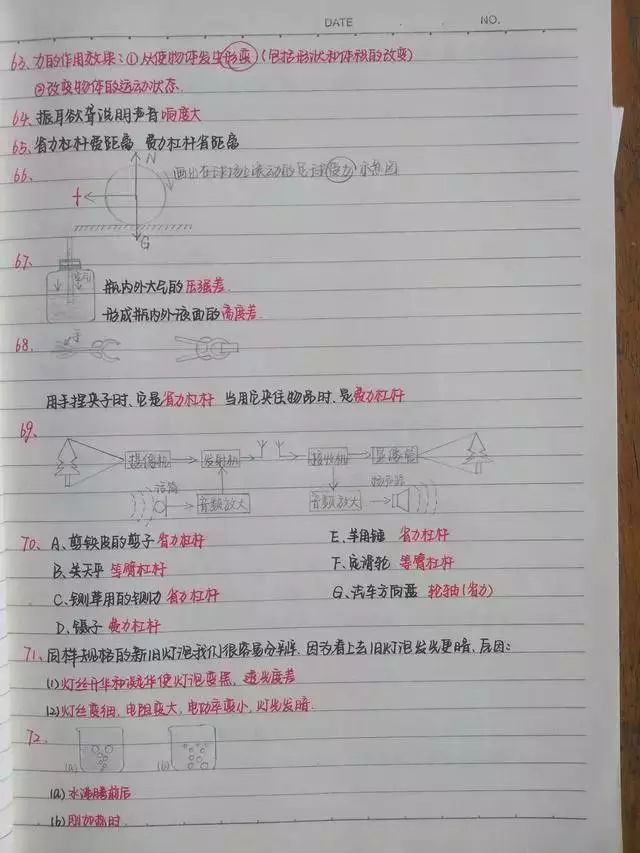 DATE NO.
63、力的作用效果:①从使物体发生形变(包括形状和体积的改变)
②改变物体的运动状态.
64、振耳欲聋说明声音响度大
65、省力杠杆费距离 费力杠杆省距离
66、
N
画出在球场上滚动的足球(受力)示意图
f
G
67、
瓶内外大气的压强差.
形成瓶内外液面的高度差.
68、
用手捏夹子时、它是省力杠杆 当用它夹住物品时、是费力杠杆
69、
摄像机 发射机 接收机 显像管
话筒 音频放大 音频放大 扬声器
70、A、剪铁皮的剪子 省力杠杆 E、羊角锤 省力杠杆
B、关天平 等臂杠杆 F、定滑轮 等臂杠杆
C、铡草用的铡刀 省力杠杆 G、汽车方向盘 轮轴(省力)
D、镊子 费力杠杆
71、同样规格的新旧灯泡我们很容易分辨、因为看上去旧灯泡发光更暗、原因:
(1)灯丝升华和凝华使灯泡变黑、透光度差
(2)灯丝变细、电阻变大、电功率变小、灯光发暗.
72、
(a) (b)
(a)水沸腾前后
(b)刚加热时